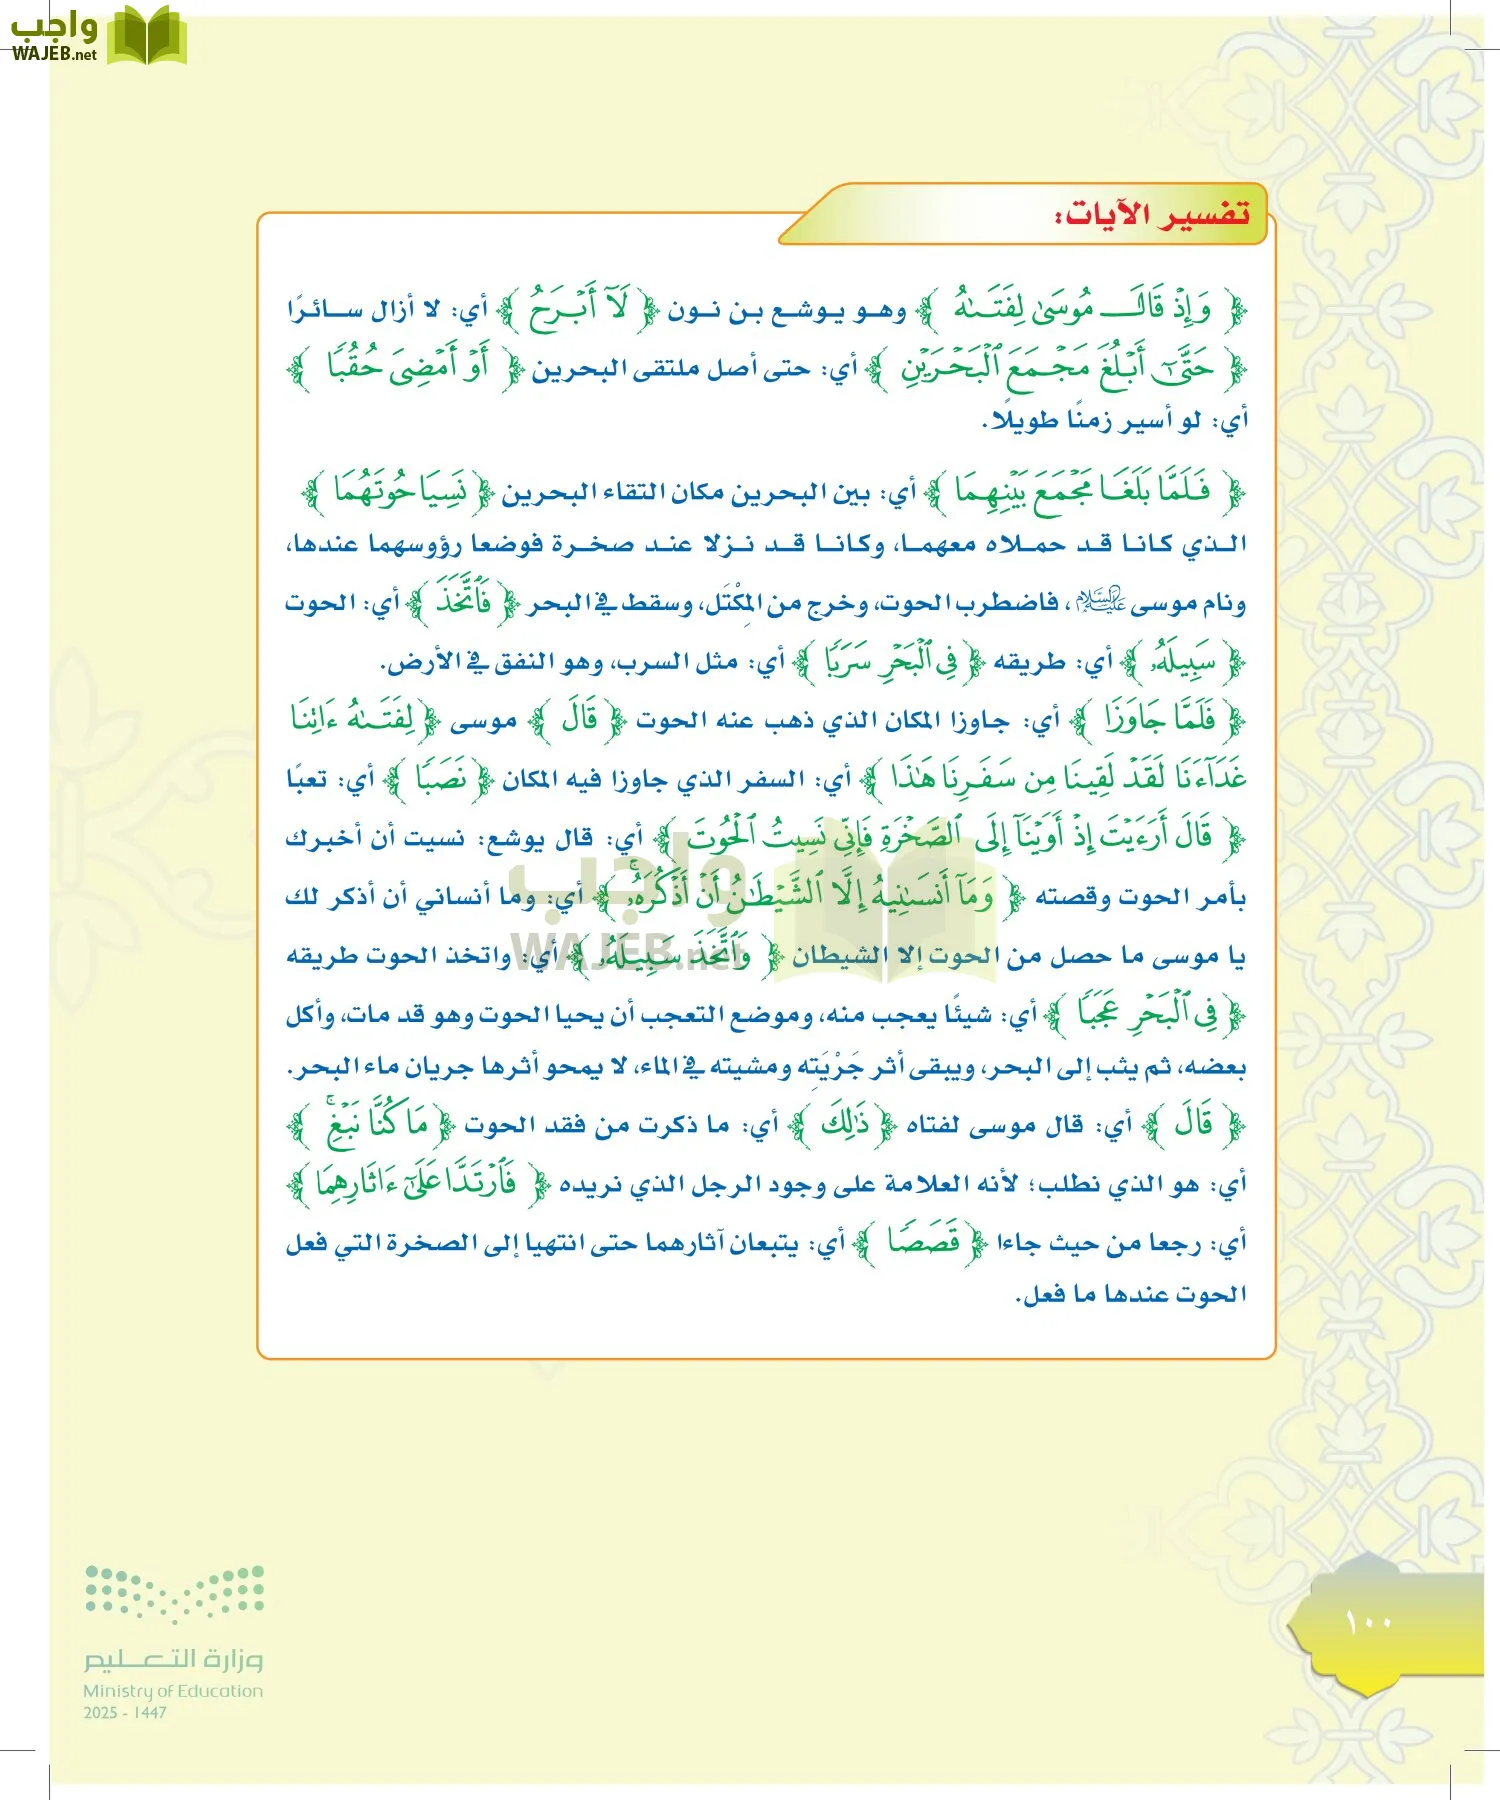 واجب
WAJEB.net
تفسير الآيات:
﴿ وَإِذْ قَالَ مُوسَىٰ لِفَتَىٰهُ ﴾ وهو يوشع بن نون ﴿ لَآ أَبْرَحُ ﴾ أي: لا أزال سائرًا
﴿ حَتَّىٰٓ أَبْلُغَ مَجْمَعَ ٱلْبَحْرَيْنِ ﴾ أي: حتى أصل ملتقى البحرين ﴿ أَوْ أَمْضِيَ حُقُبًا ﴾
أي: لو أسير زمنًا طويلًا.
﴿ فَلَمَّا بَلَغَا مَجْمَعَ بَيْنِهِمَا ﴾ أي: بين البحرين مكان التقاء البحرين ﴿ نَسِيَا حُوتَهُمَا ﴾
الذي كانا قد حملاه معهما، وكانا قد نزلا عند صخرة فوضعا رؤوسهما عندها،
ونام موسى عليه السلام، فاضطرب الحوت، وخرج من المِكْتَل، وسقط في البحر ﴿ فَٱتَّخَذَ ﴾ أي: الحوت
﴿ سَبِيلَهُۥ ﴾ أي: طريقه ﴿ فِي ٱلْبَحْرِ سَرَبًا ﴾ أي: مثل السرب، وهو النفق في الأرض.
﴿ فَلَمَّا جَاوَزَا ﴾ أي: جاوزا المكان الذي ذهب عنه الحوت ﴿ قَالَ ﴾ موسى ﴿ لِفَتَىٰهُ ءَاتِنَا
غَدَآءَنَا لَقَدْ لَقِينَا مِن سَفَرِنَا هَٰذَا ﴾ أي: السفر الذي جاوزا فيه المكان ﴿ نَصَبًا ﴾ أي: تعبًا
﴿ قَالَ أَرَءَيْتَ إِذْ أَوَيْنَآ إِلَى ٱلصَّخْرَةِ فَإِنِّي نَسِيتُ ٱلْحُوتَ ﴾ أي: قال يوشع: نسيت أن أخبرك
بأمر الحوت وقصته ﴿ وَمَآ أَنسَىٰنِيهُ إِلَّا ٱلشَّيْطَٰنُ أَنْ أَذْكُرَهُۥۚ ﴾ أي: وما أنساني أن أذكر لك
يا موسى ما حصل من الحوت إلا الشيطان ﴿ وَٱتَّخَذَ سَبِيلَهُۥ ﴾ أي: واتخذ الحوت طريقه
﴿ فِي ٱلْبَحْرِ عَجَبًا ﴾ أي: شيئًا يعجب منه، وموضع التعجب أن يحيا الحوت وهو قد مات، وأكل
بعضه، ثم يثب إلى البحر، ويبقى أثر جَرْيَتِه ومشيته في الماء، لا يمحو أثرها جريان ماء البحر.
﴿ قَالَ ﴾ أي: قال موسى لفتاه ﴿ ذَٰلِكَ ﴾ أي: ما ذكرت من فقد الحوت ﴿ مَا كُنَّا نَبْغِۚ ﴾
أي: هو الذي نطلب؛ لأنه العلامة على وجود الرجل الذي نريده ﴿ فَٱرْتَدَّا عَلَىٰٓ ءَاثَارِهِمَا ﴾
أي: رجعا من حيث جاءا ﴿ قَصَصًا ﴾ أي: يتبعان آثارهما حتى انتهيا إلى الصخرة التي فعل
الحوت عندها ما فعل.
واجب
WAJEB.net
١٠٠
وزارة التعليم
Ministry of Education
2025 - 1447